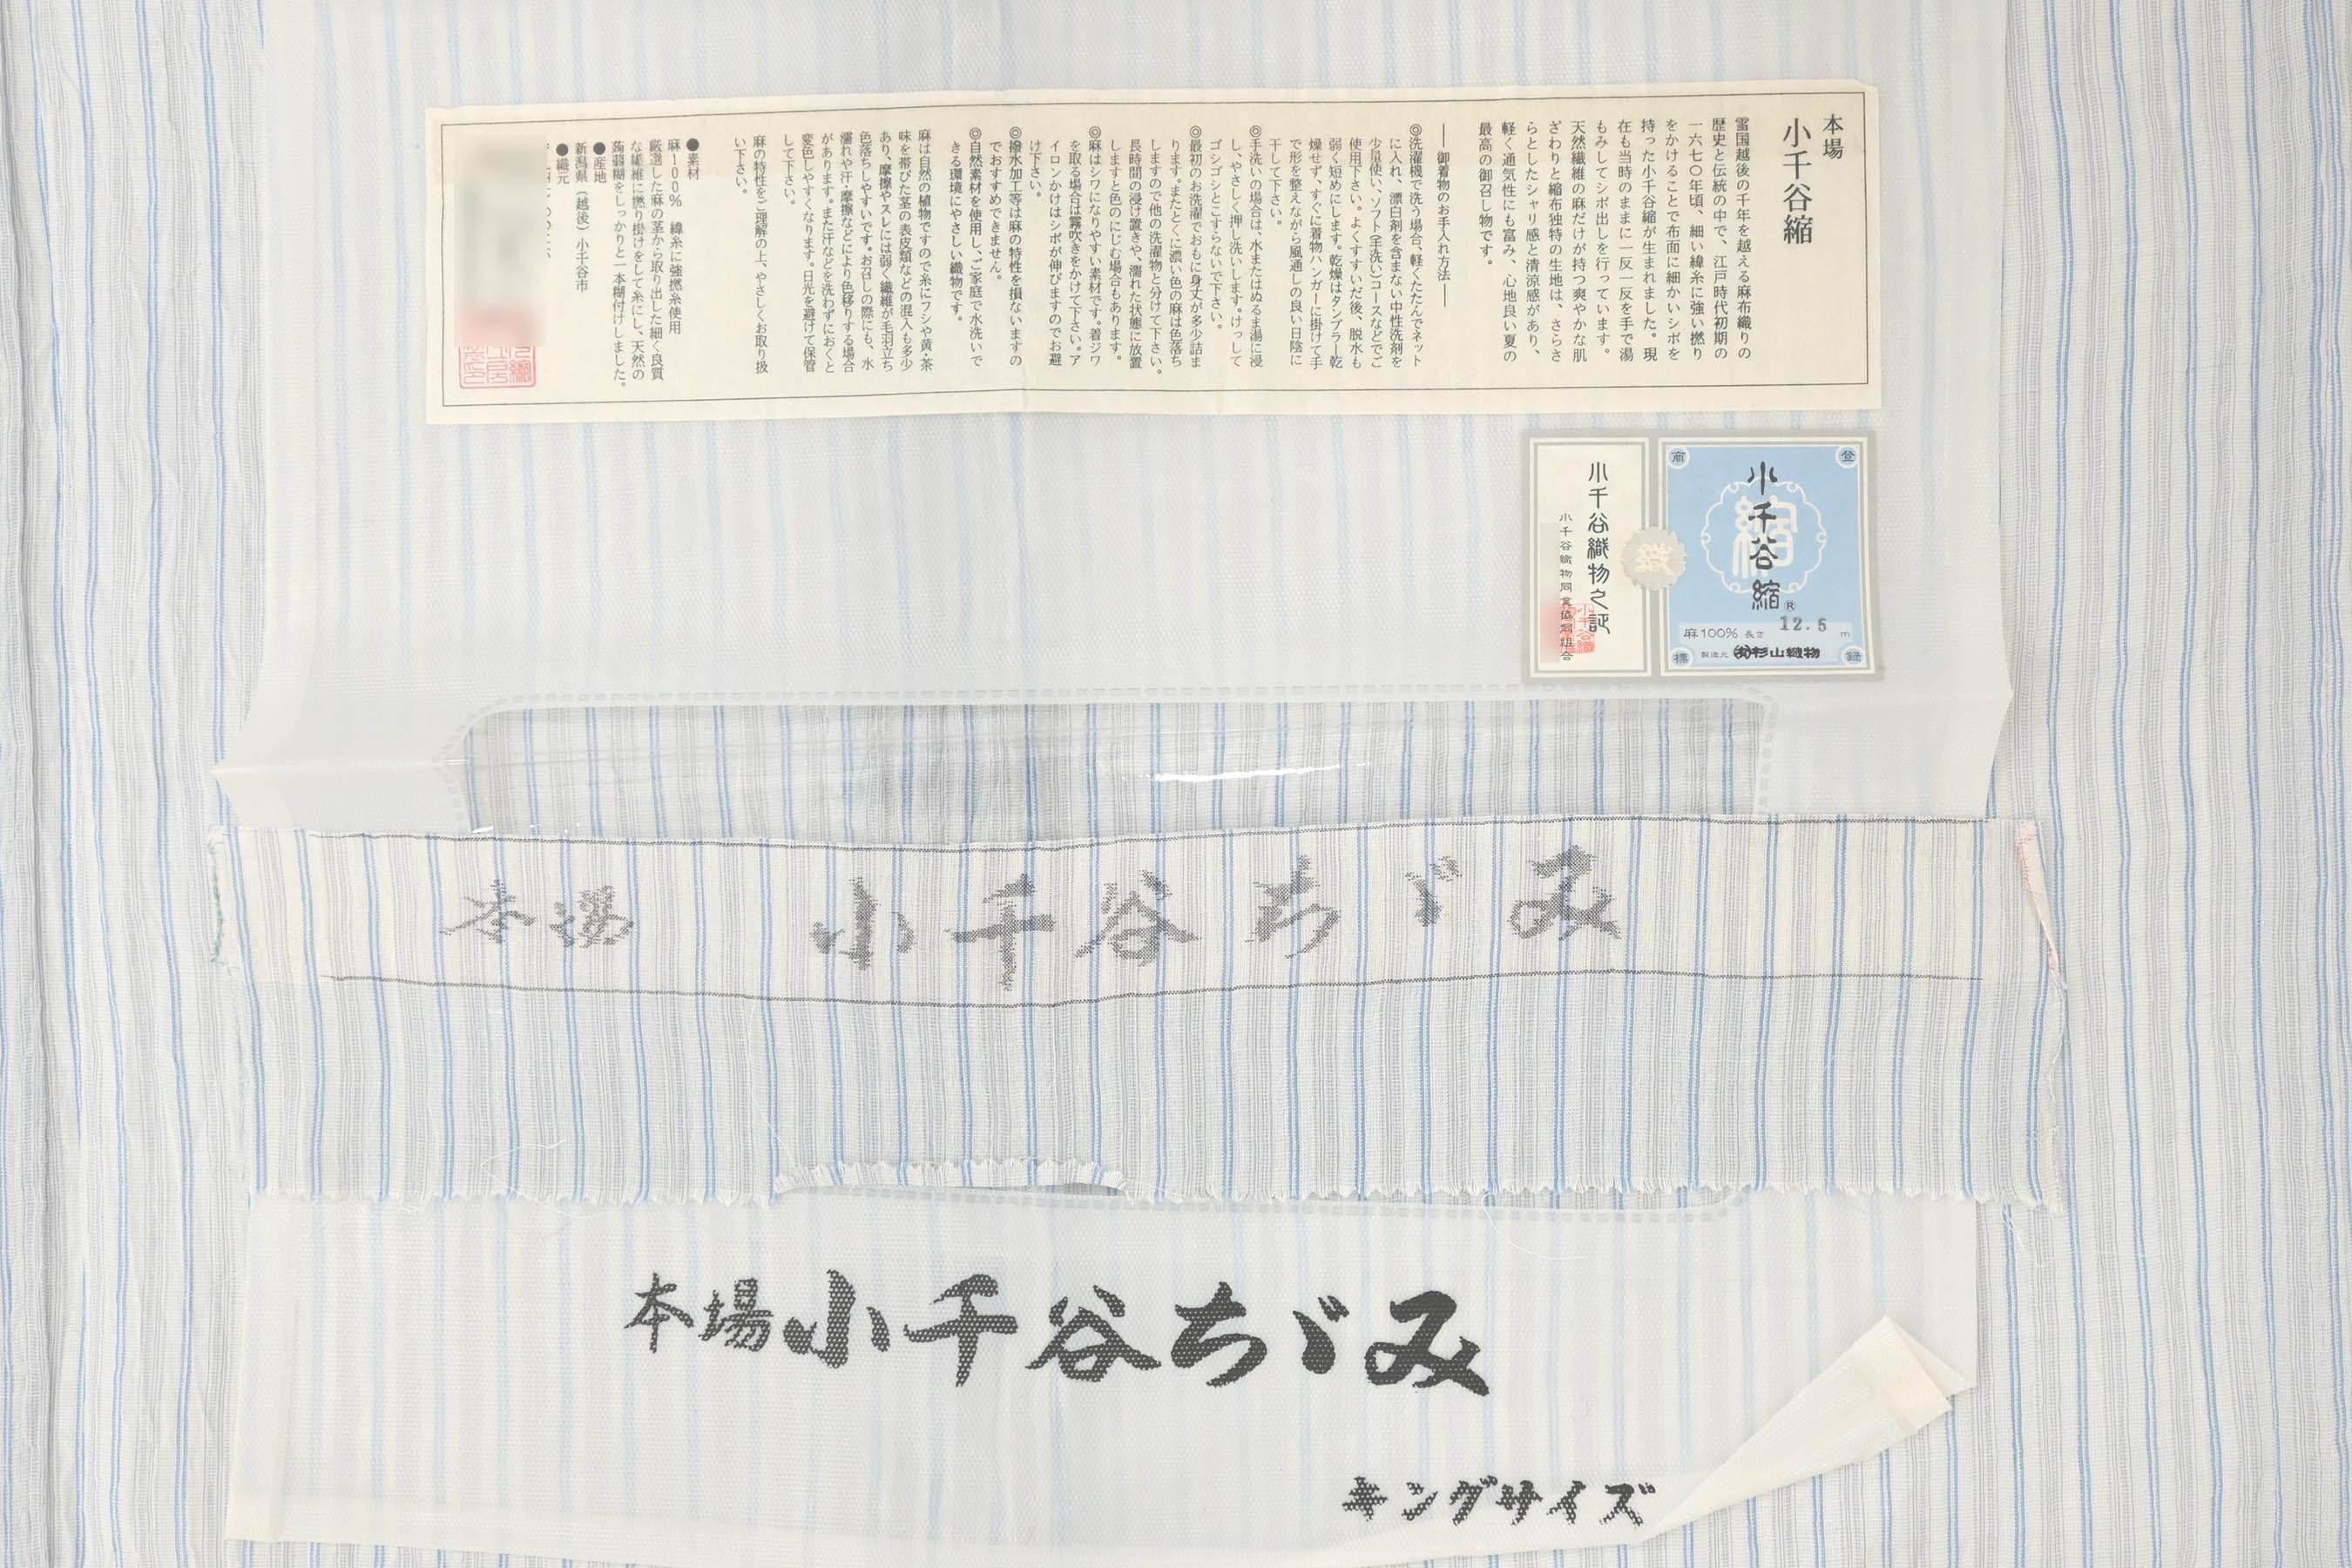 本場
小千谷縮
雪国越後の千年を越える麻布織りの
歴史と伝統の中で、江戸時代初期の
一六七〇年頃、細い緯糸に強い撚り
をかけることで布面に細かいシボを
持った小千谷縮が生まれました。現
在も当時のままに一反一反を手で湯
もみしてシボ出しを行っています。
天然繊維の麻だけが持つ爽やかな肌
ざわりと縮布独特の生地は、さらさ
らとしたシャリ感と清涼感があり、
軽く通気性にも富み、心地良い夏の
最高の御召し物です。
――御着物のお手入れ方法――
◎洗濯機で洗う場合、軽くたたんでネット
に入れ、漂白剤を含まない中性洗剤を
少量使い、ソフト(手洗い)コースなどでご
使用下さい。よくすすいだ後、脱水も
弱く短めにします。乾燥はタンブラー乾
燥せず、すぐに着物ハンガーに掛けて手
で形を整えながら風通しの良い日陰に
干して下さい。
◎手洗いの場合は、水またはぬるま湯に浸
し、やさしく押し洗いします。けっして
ゴシゴシとこすらないで下さい。
◎最初のお洗濯でおもに身丈が多少詰ま
ります。またとくに濃い色の麻は色落ち
しますので他の洗濯物と分けて下さい。
長時間の浸け置きや、濡れた状態に放置
しますと色のにじむ場合もあります。
◎麻はシワになりやすい素材です。着ジワ
を取る場合は霧吹きをかけて下さい。ア
イロンかけはシボが伸びますのでお避
け下さい。
◎撥水加工等は麻の特性を損ないますの
でおすすめできません。
◎自然素材を使用し、ご家庭で水洗いで
きる環境にやさしい織物です。
麻は自然の植物ですので糸にフシや黄・茶
味を帯びた茎の表皮類などの混入も多少
あり、摩擦やスレには弱く繊維が毛羽立ち
色落ちしやすいです。お召しの際にも、水
濡れや汗・摩擦などにより色移りする場合
があります。また汗などを洗わずにおくと
変色しやすくなります。日光を避けて保管
して下さい。
麻の特性をご理解の上、やさしくお取り扱
い下さい。
●素材
麻100% 緯糸に強撚糸使用
厳選した麻の茎から取り出した細く良質
な繊維に撚り掛けをして糸にし、天然の
蒟蒻糊をしっかりと一本糊付けしました。
●産地
新潟県(越後)小千谷市
●織元
登録商標
縮
小千谷縮®
麻100% 長さ 12.5 m
製造元 ㈲杉山織物
織
小千谷織物之証
小千谷織物同業協同組合
本場 小千谷ちゞみ
本場小千谷ちゞみ
キングサイズ